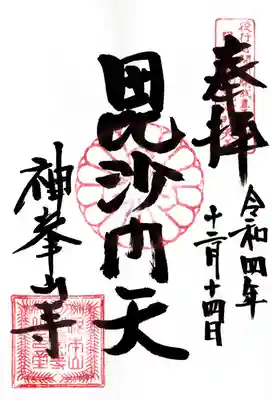 奉拝
令和四年
十二月十四日
毘沙门天
神峯山寺